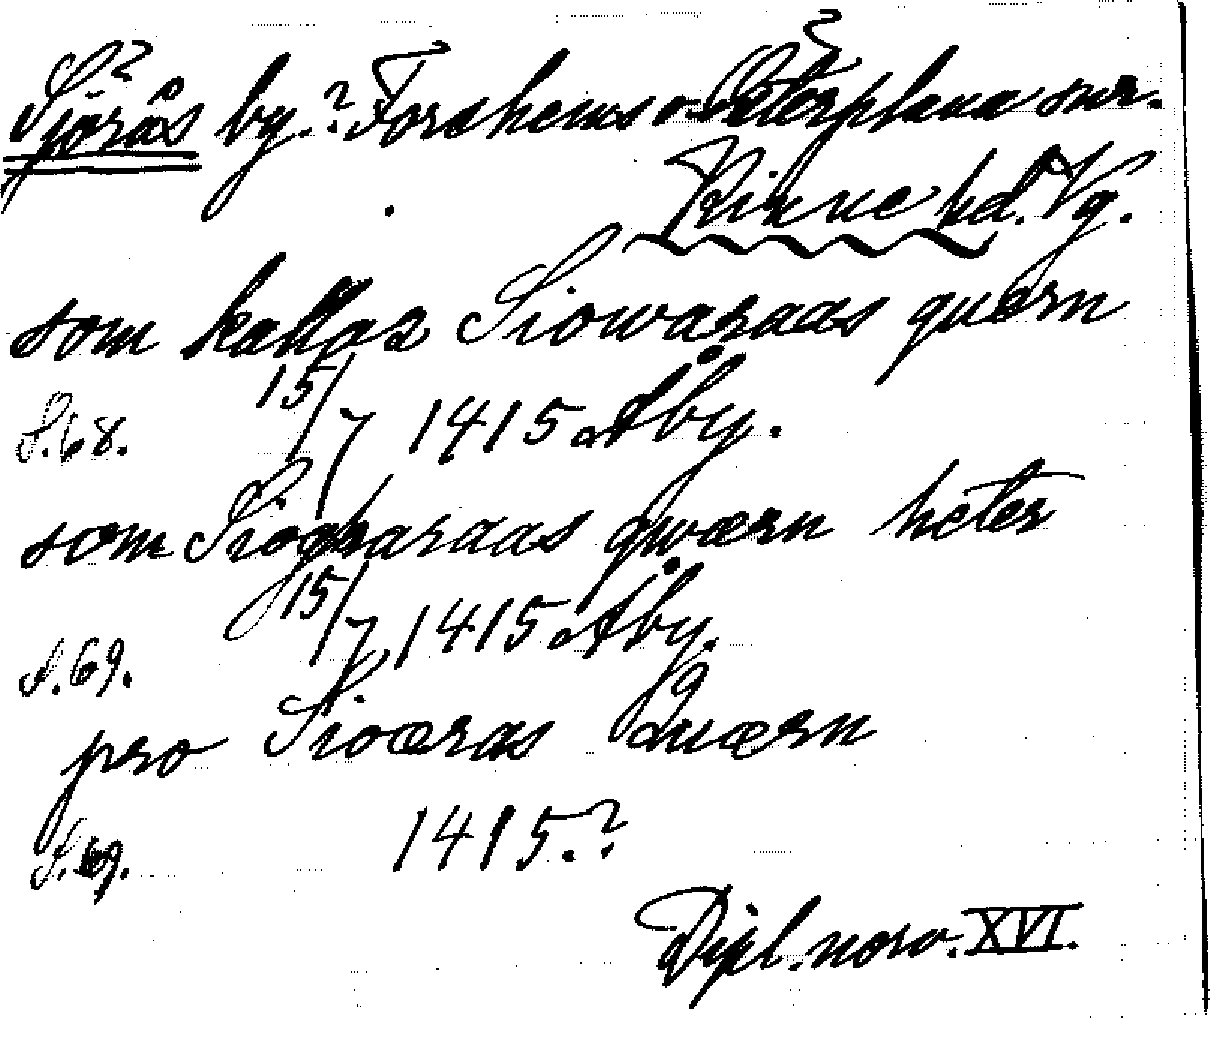 Sjörås? by.? Forshems o. Österplana? snr.
Kinne hd. Vg.
som kallas Siowaraas quern
S. 68. 15/7 1415 Åby.
som Siogharaas qwærn heter
S. 69. 15/7 1415 Åby.
pro Sioæras Quærn
S. 69. 1415.?
Dipl. norv. XVI.